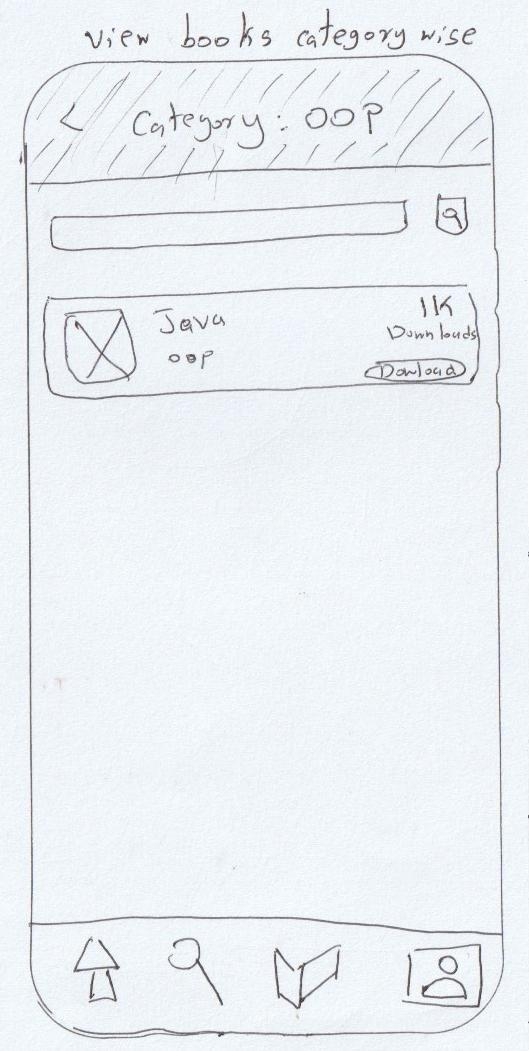 view books category wise
< Category: OOP
Java
OOP
1K
Downloads
Dowload